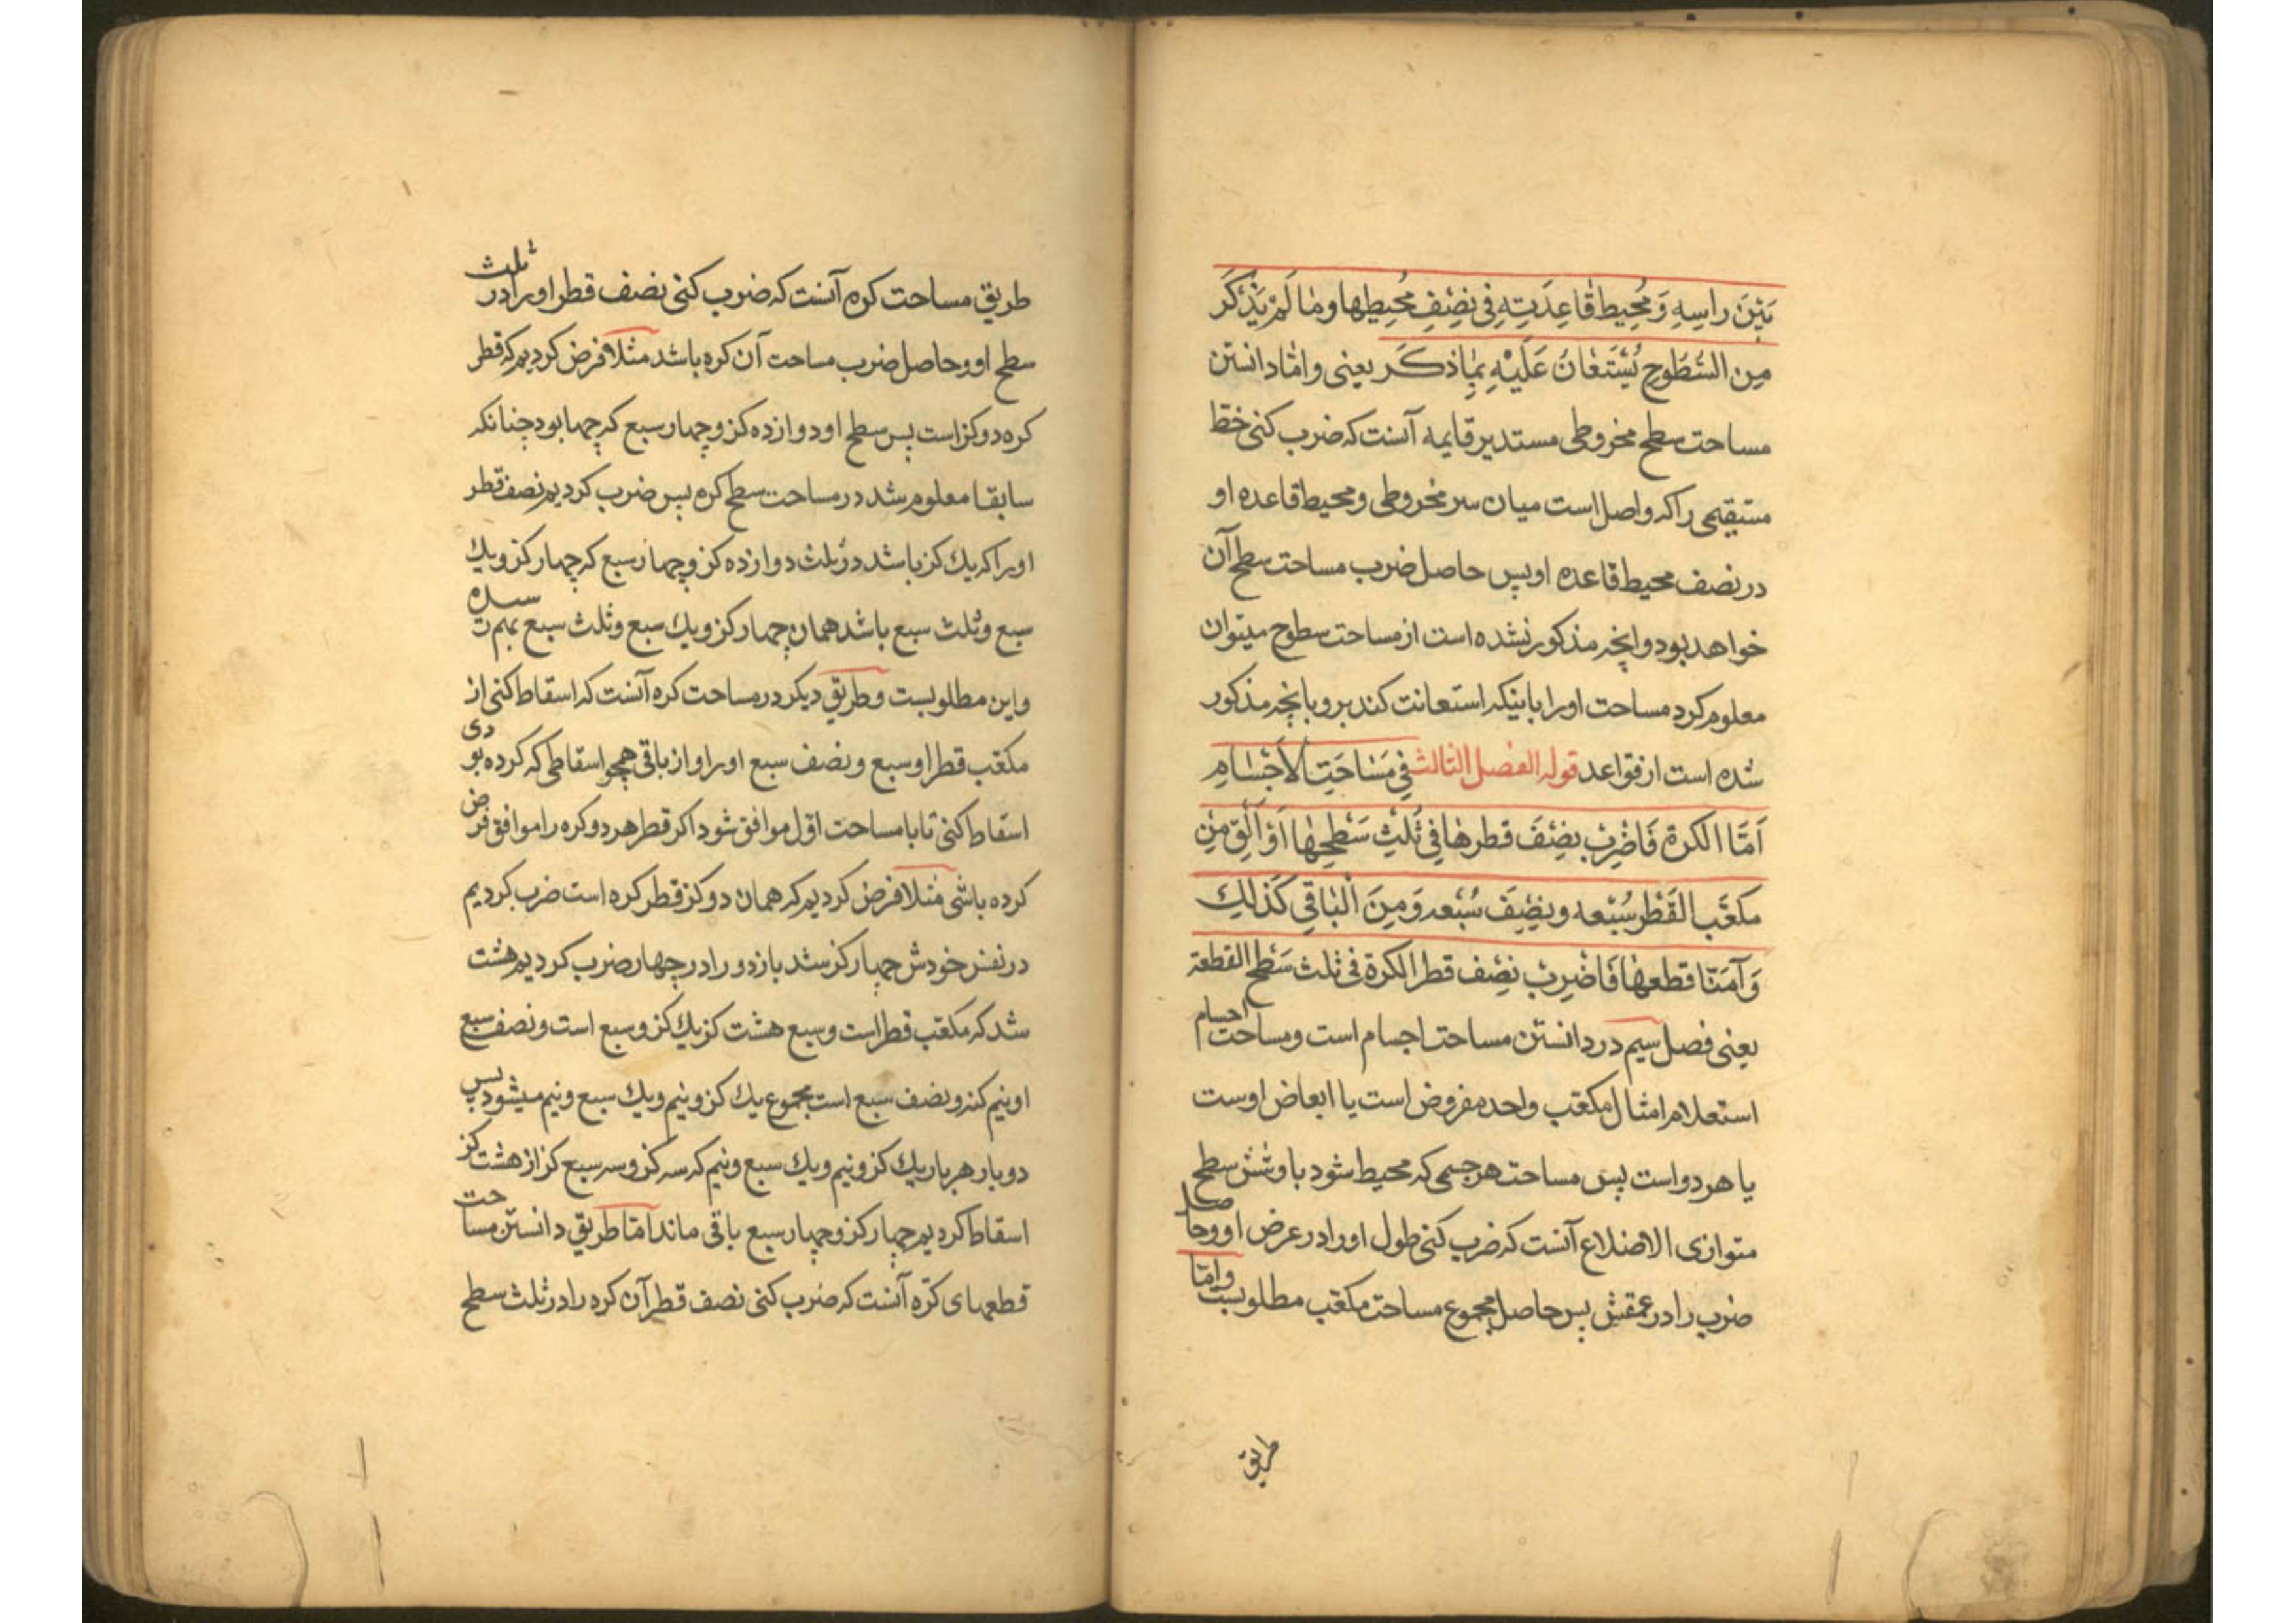 بَيْنَ راسِهِ وَمُحِيط قاعِدَتِهِ فِى نِصْفِ مُحِيطها وما لَمْ يُذْكَر
مِن السُّطُوحِ يُسْتَعانُ عَلَيْهِ بِمٰا ذكَر يعنى واما دانستن
مساحت سطح مخروطى مستدير قايمه آنست كه ضرب كنى خط
مستقيمى را كه واصل است ميان سر مخروطى ومحيط قاعده او
در نصف محيط قاعده او پس حاصل ضرب مساحت سطح آن
خواهد بود وانچه مذكور نشده است از مساحت سطوح ميتوان
معلوم كرد مساحت اورا باينكه استعانت كند برو بانچه مذكور
شده است از قواعد قوله الفصل الثالث فِي مَسٰاحَتِ الأَجْسٰامِ
اَمَّا الكرة فَاضْرِبْ نِصْفَ قطرهٰا فِي ثُلْثِ سَطْحِهٰا اَوْ اَلْقِ مِنْ
مكعَّب القُطْر سُبْعه ونِصْفَ سُبْعه وَمِنَ الْبٰاقِي كَذٰلِكَ
وَاَمَّا قطعهٰا فَاضْرِبْ نِصْف قطر الكرة فى ثلث سَطْح القطعة
يعنى فصل سيم در دانستن مساحت اجسام است ومساحت اجسام
استعلام امثال مكعب واحد مفروض است يا ابعاض اوست
يا هر دو است پس مساحت هر جسمى كه محيط شود باو شش سطح
متوازى الاضلاع آنست كه ضرب كنى طول اورا در عرض او وحاصل
ضرب را در عمقش پس حاصل مجموع مساحت مكعب مطلوبست واما
طريق
طريق مساحت كره آنست كه ضرب كنى نصف قطر اورا در ثلث
سطح او وحاصل ضرب مساحت آن كره باشد مثلا فرض كرديم كه قطر
كره دو كز است پس سطح او دوازده كز وچهار سبع كه چهابود چنانكه
سابقا معلوم شد در مساحت سطح كره پس ضرب كرديم نصف قطر
اورا كه يك كز باشد در ثلث دوازده كز وچهار سبع كه چهار كز ويك
سبع وثلث سبع باشد همان چهار كز ويك سبع وثلث سبع بهم رسيده
واين مطلوبست وطريق ديكر در مساحت كره آنست كه اسقاط كنى از
مكعب قطر او سبع ونصف سبع اورا واز باقى همچو اسقاطى كه كرده بودى
اسقاط كنى تا با مساحت اول موافق شود اكر قطر هر دو كره را موافق فرض
كرده باشى مثلا فرض كرديم كه همان دو كز قطر كره است ضرب كرديم
در نفس خودش چهار كز شد باز دو را در چهار ضرب كرديم هشت
شد كه مكعب قطر است وسبع هشت كز يك كز وسبع است ونصف سبع
او نيم كز ونصف سبع است مجموع يك كز ونيم ويك سبع ونيم ميشود پس
دو بار هر بار يك كز ونيم ويك سبع ونيم كه سه كز وسه سبع كز از هشت كز
اسقاط كرديم چهار كز وچهار سبع باقى ماند اما طريق دانستن مساحت
قطعهاى كره آنست كه ضرب كنى نصف قطر آن كره را در ثلث سطح